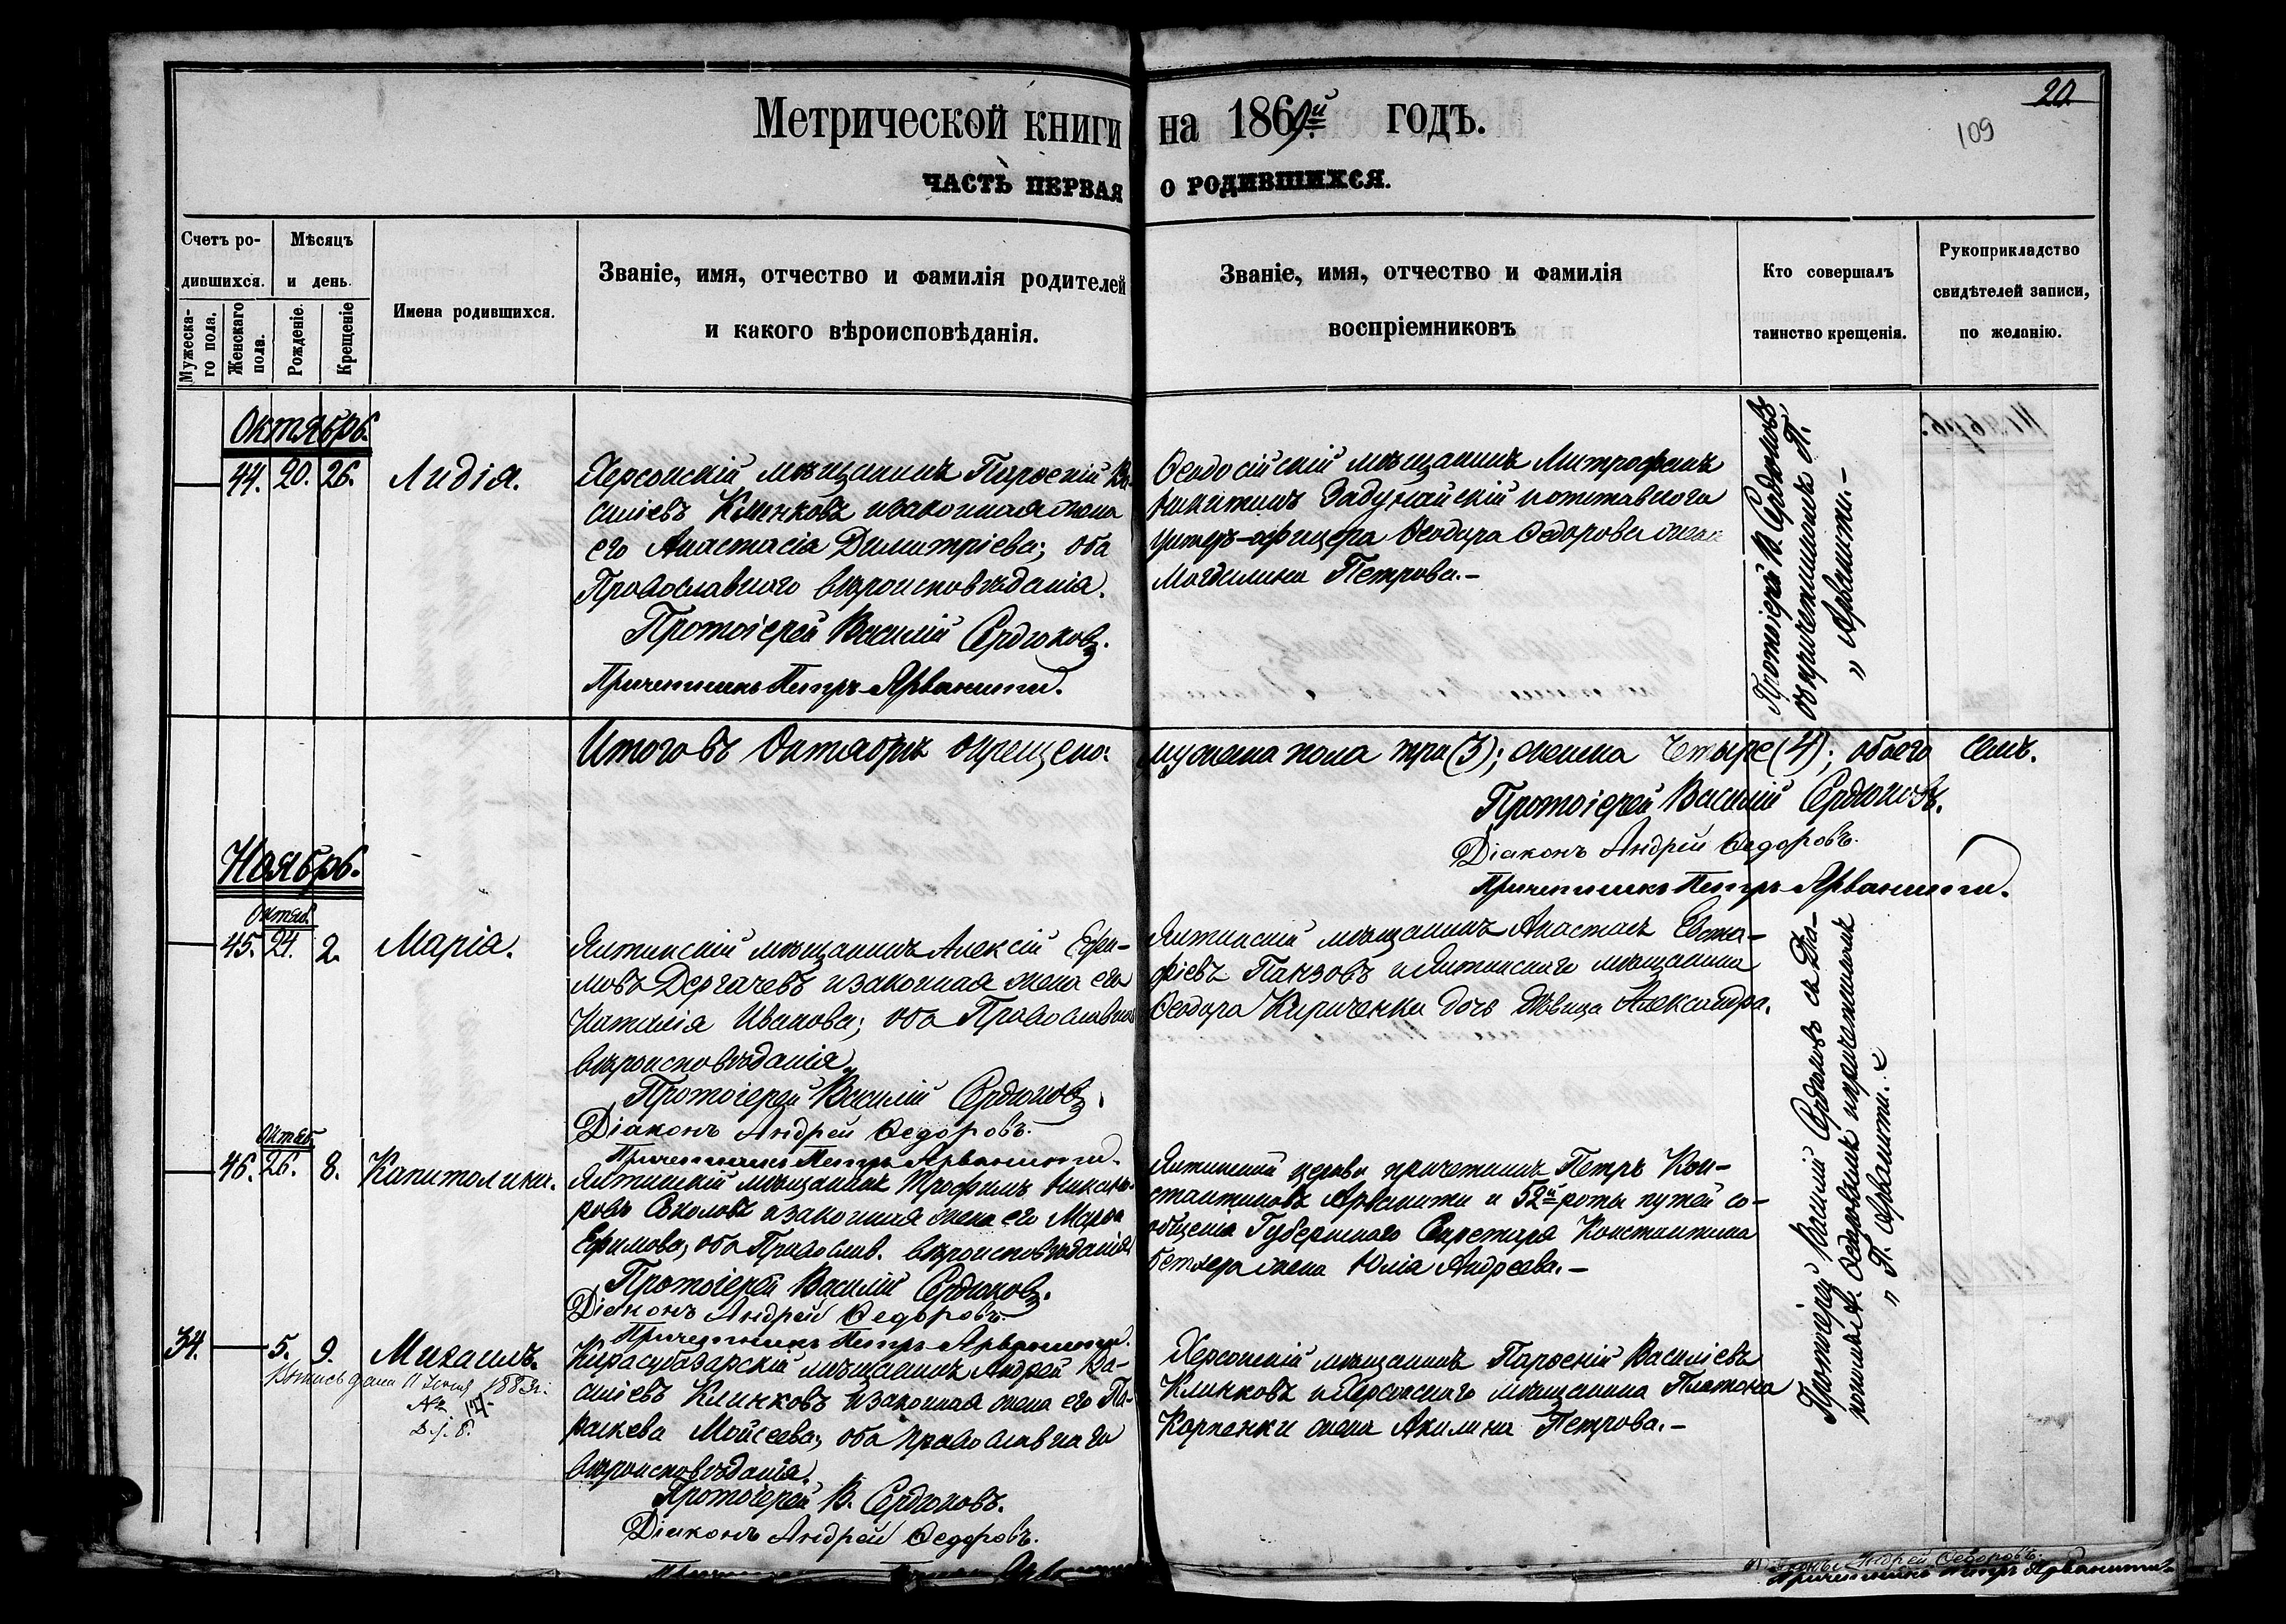 20
109
Метрической книги на 1869й годъ.
ЧАСТЬ ПЕРВАЯ О РОДИВШИХСЯ.
Счетъ ро-
дившихся.
Мужеска-
го пола.
Женскаго
пола.
Мѣсяцъ
и день.
Рожденіе.
Крещеніе
Имена родившихся.
Званіе, имя, отчество и фамилія родителей
и какого вѣроисповѣданія.
Званіе, имя, отчество и фамилія
воспріемниковъ
Кто совершалъ
таинство крещенія.
Рукоприкладство
свидѣтелей записи,
по желанію.
Октябрь.
44. 20. 26. Лидія.
Херсонскій мѣщанинъ Парѳеній Ва-
силіевъ Клинковъ и законная жена
его Анастасія Димитріева; оба
Православнаго вѣроисповѣданія.
Протоіерей Василій Сердюковъ.
Причетникъ Петръ Арванити.
Ѳеодосійскій мѣщанинъ Митрофанъ
Никитинъ Задунайскій и отставного
унтеръ-офицера Ѳеодора Ѳедорова жена
Магдалина Петрова.-
Протоіерей В. Сердюковъ
съ причетникомъ П.
„ Арванити.-
Итого въ Октябрѣ крещено: мужеска пола три (3); женска четыре (4); обоего семь.
Протоіерей Василій Сердюковъ.
Діаконъ Андрей Ѳедоровъ.
Причетникъ Петръ Арванити.
Ноябрь.
Октяб.
45. 24. 2. Марія.
Ялтинскій мѣщанинъ Алексій Ефи-
мовъ Дергачевъ и законная жена его
Наталія Иванова; оба Православнаго
вѣроисповѣданія.
Протоіерей Василій Сердюковъ.
Діаконъ Андрей Ѳедоровъ.
Причетникъ Петръ Арванити.
Ялтинскій мѣщанинъ Анастасъ Евста-
фіевъ Панзовъ и Ялтинскаго мѣщанина
Ѳеодора Кириченка дочь дѣвица Александра.
Октяб.
46. 26. 8. Капитолина.
Ялтинскій мѣщанинъ Трофимъ Никано-
ровъ Соколовъ и законная жена его Марѳа
Ефимова; оба Православ. вѣроисповѣданія.
Протоіерей Василій Сердюковъ.
Діаконъ Андрей Ѳедоровъ.
Причетникъ Петръ Арванити.
Ялтинской церкви причетникъ Петръ Кон-
стантиновъ Арванити и 52й роты путей со-
общенія Губернскаго Секретаря Константина
жена Юлія Андреева.-
34. 5. 9. Михаилъ.
Выпись дана 11 188
№
Кирасубазарскій мѣщанинъ Андрей Ва-
силіевъ Клинковъ и законная жена его Па-
раскева Мойсеева; оба православнаго
вѣроисповѣданія.
Протоіерей В. Сердюковъ.
Діаконъ Андрей Ѳедоровъ.
Херсонскій мѣщанинъ Парѳеній Василіевъ
Клинковъ и Херсонскаго мѣщанина Платона
Карпенки жена Акилина Петрова.-
Протоіерей Василій Сердюковъ съ Діа-
кономъ А. Ѳедоровымъ и причетникомъ
„ П. Арванити.
Діаконъ Андрей Ѳедоровъ.
Причетникъ Петръ Арванити.